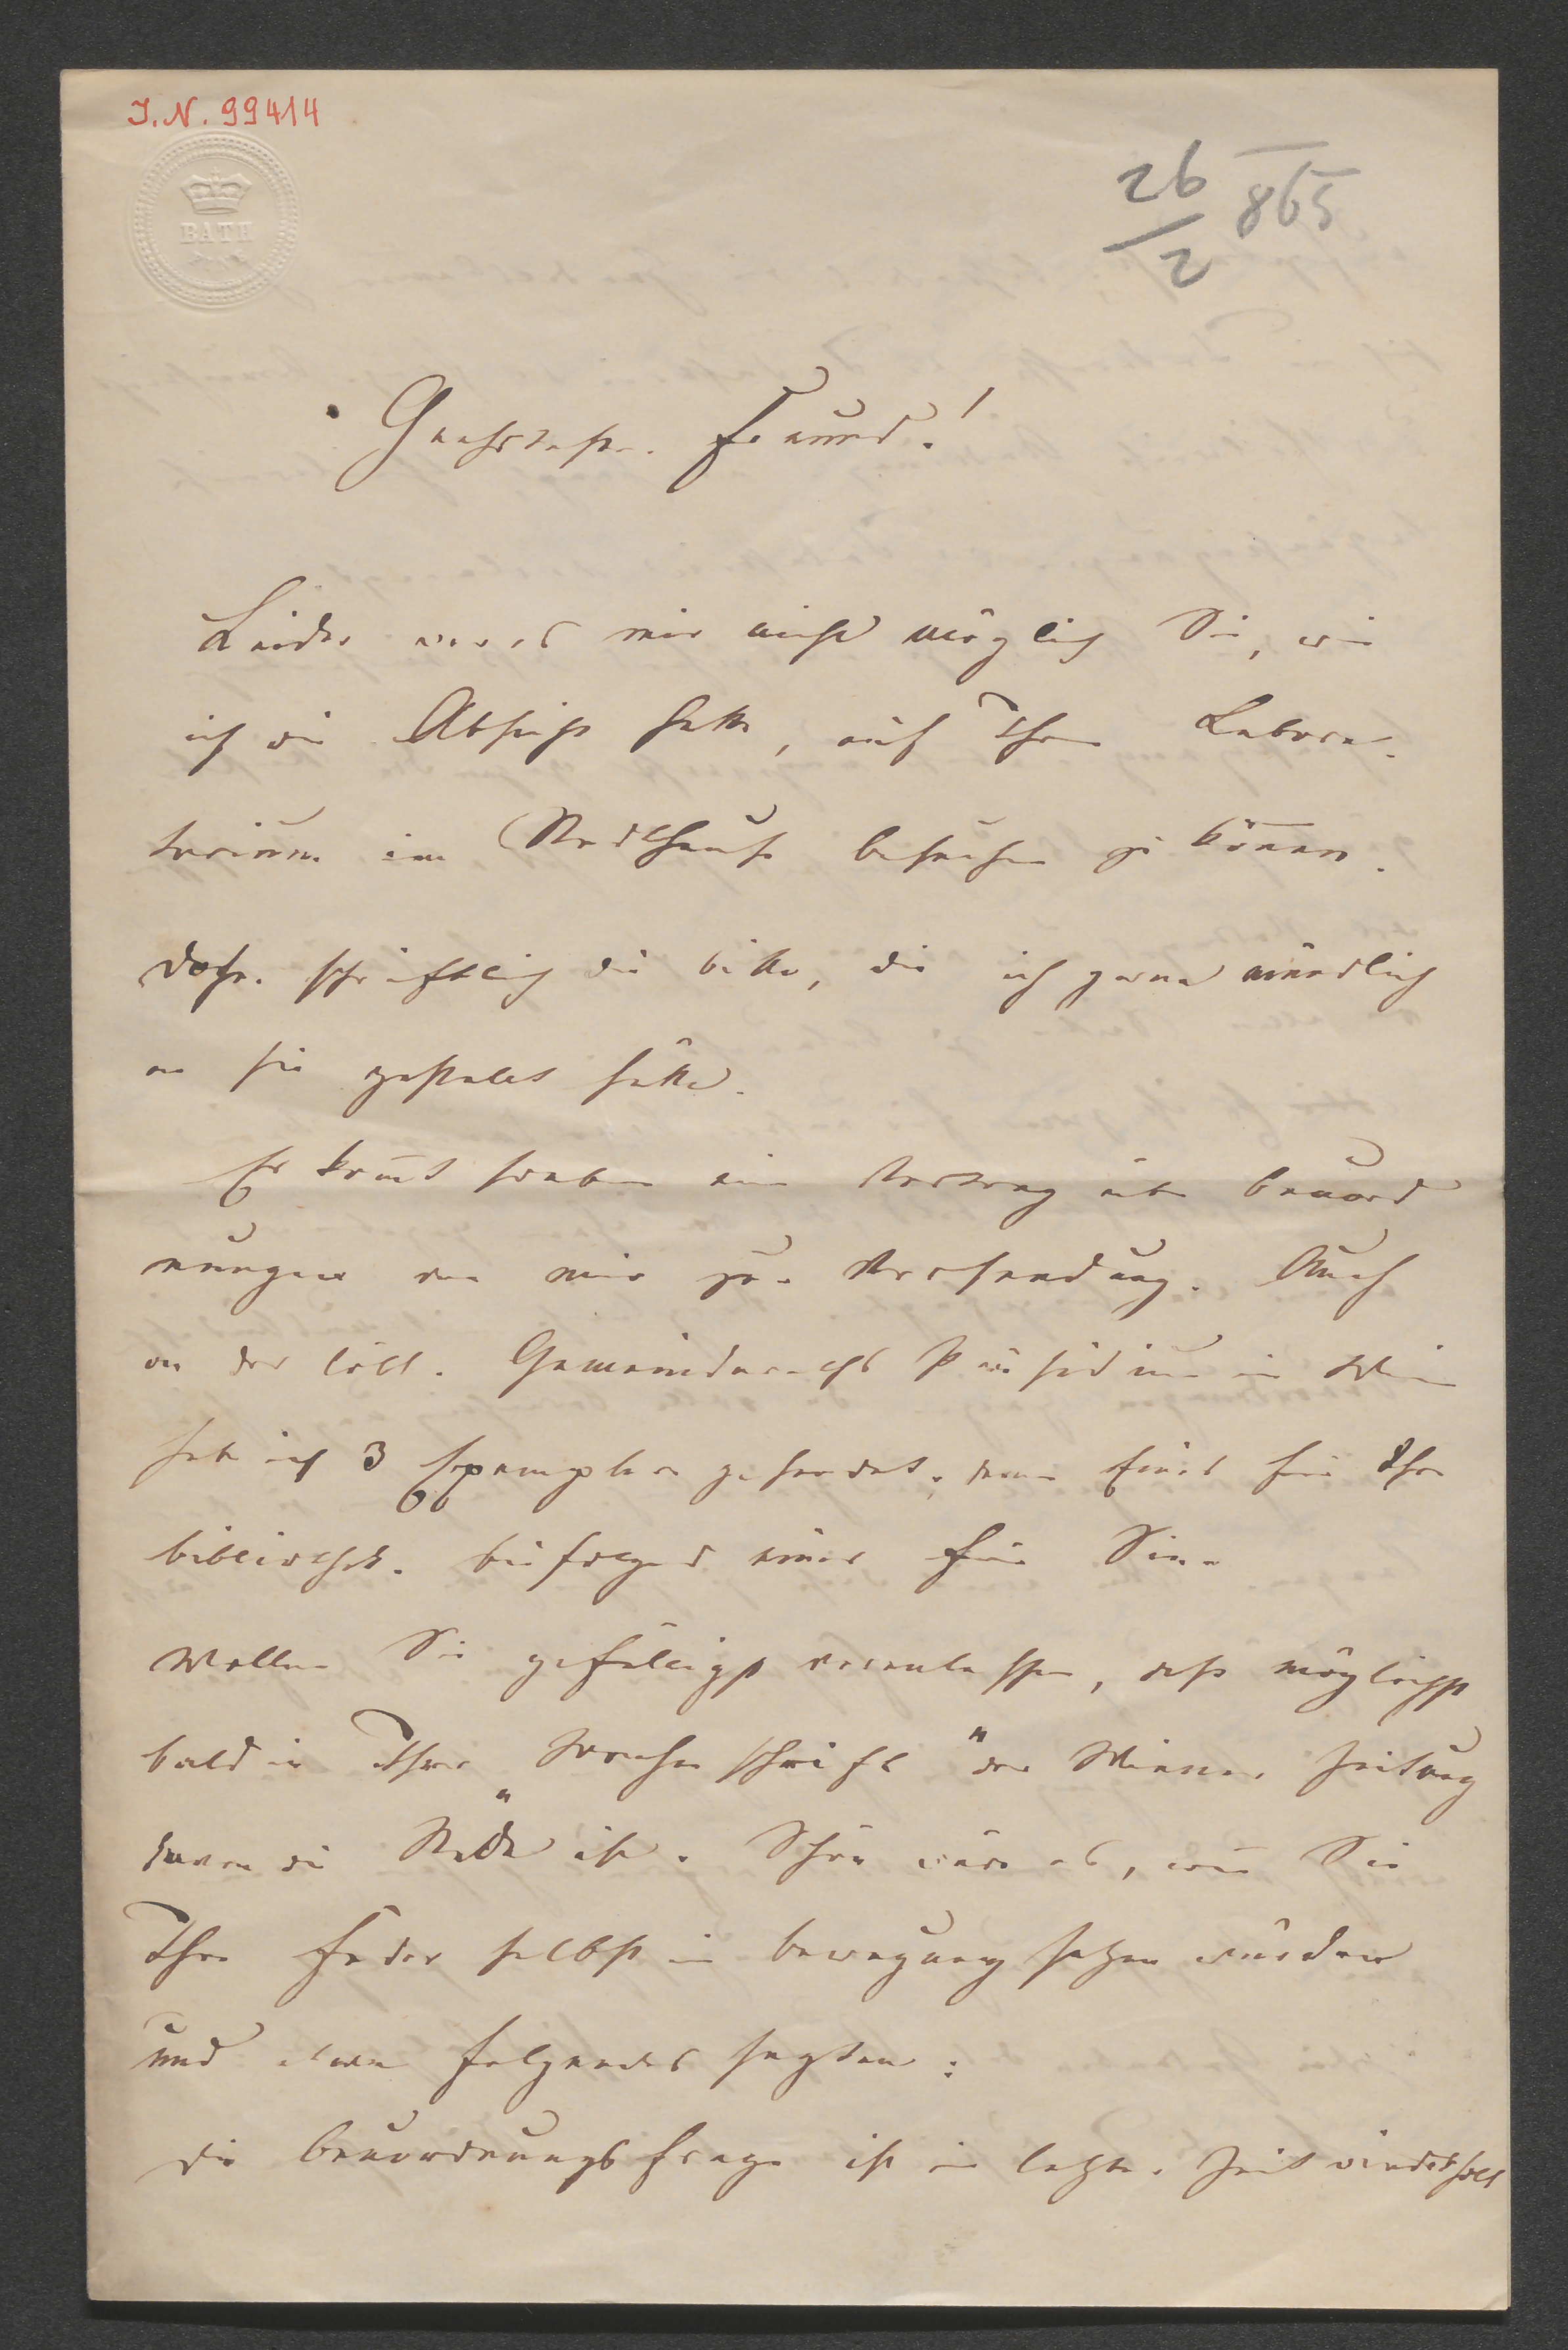 I. N. 99414
BATH
26/2 865
Geehrtester Freund!
Leider war es mir nicht möglich Sie, wie
ich die Absicht hatte, auf Ihrem Labora-
torium im Stadthause besuchen zu können.
Daher schriftlich die Bitte, die ich gerne mündlich
an Sie gestellt hätte.
Es kommt soeben ein Vortrag über Bauord
nungen von mir zur Versendung. Auch
an das löbl. Gemeinderaths Präsidium in Wien
habe ich 3 Exemplare gesendet, davon Eines für Ihre
Bibliothek. Beifolgend eines für Sie.
Wollen Sie gefälligst veranlassen, dass möglichst
bald in Ihrer "Wochenschrift" der Wiener Zeitung
davon die Rede ist. Schön wäre es, wenn Sie
Ihre Feder selbst in Bewegung setzen würden
und etwa Folgendes sagten:
Die Bauordnungsfrage ist in letzter Zeit wiederholt